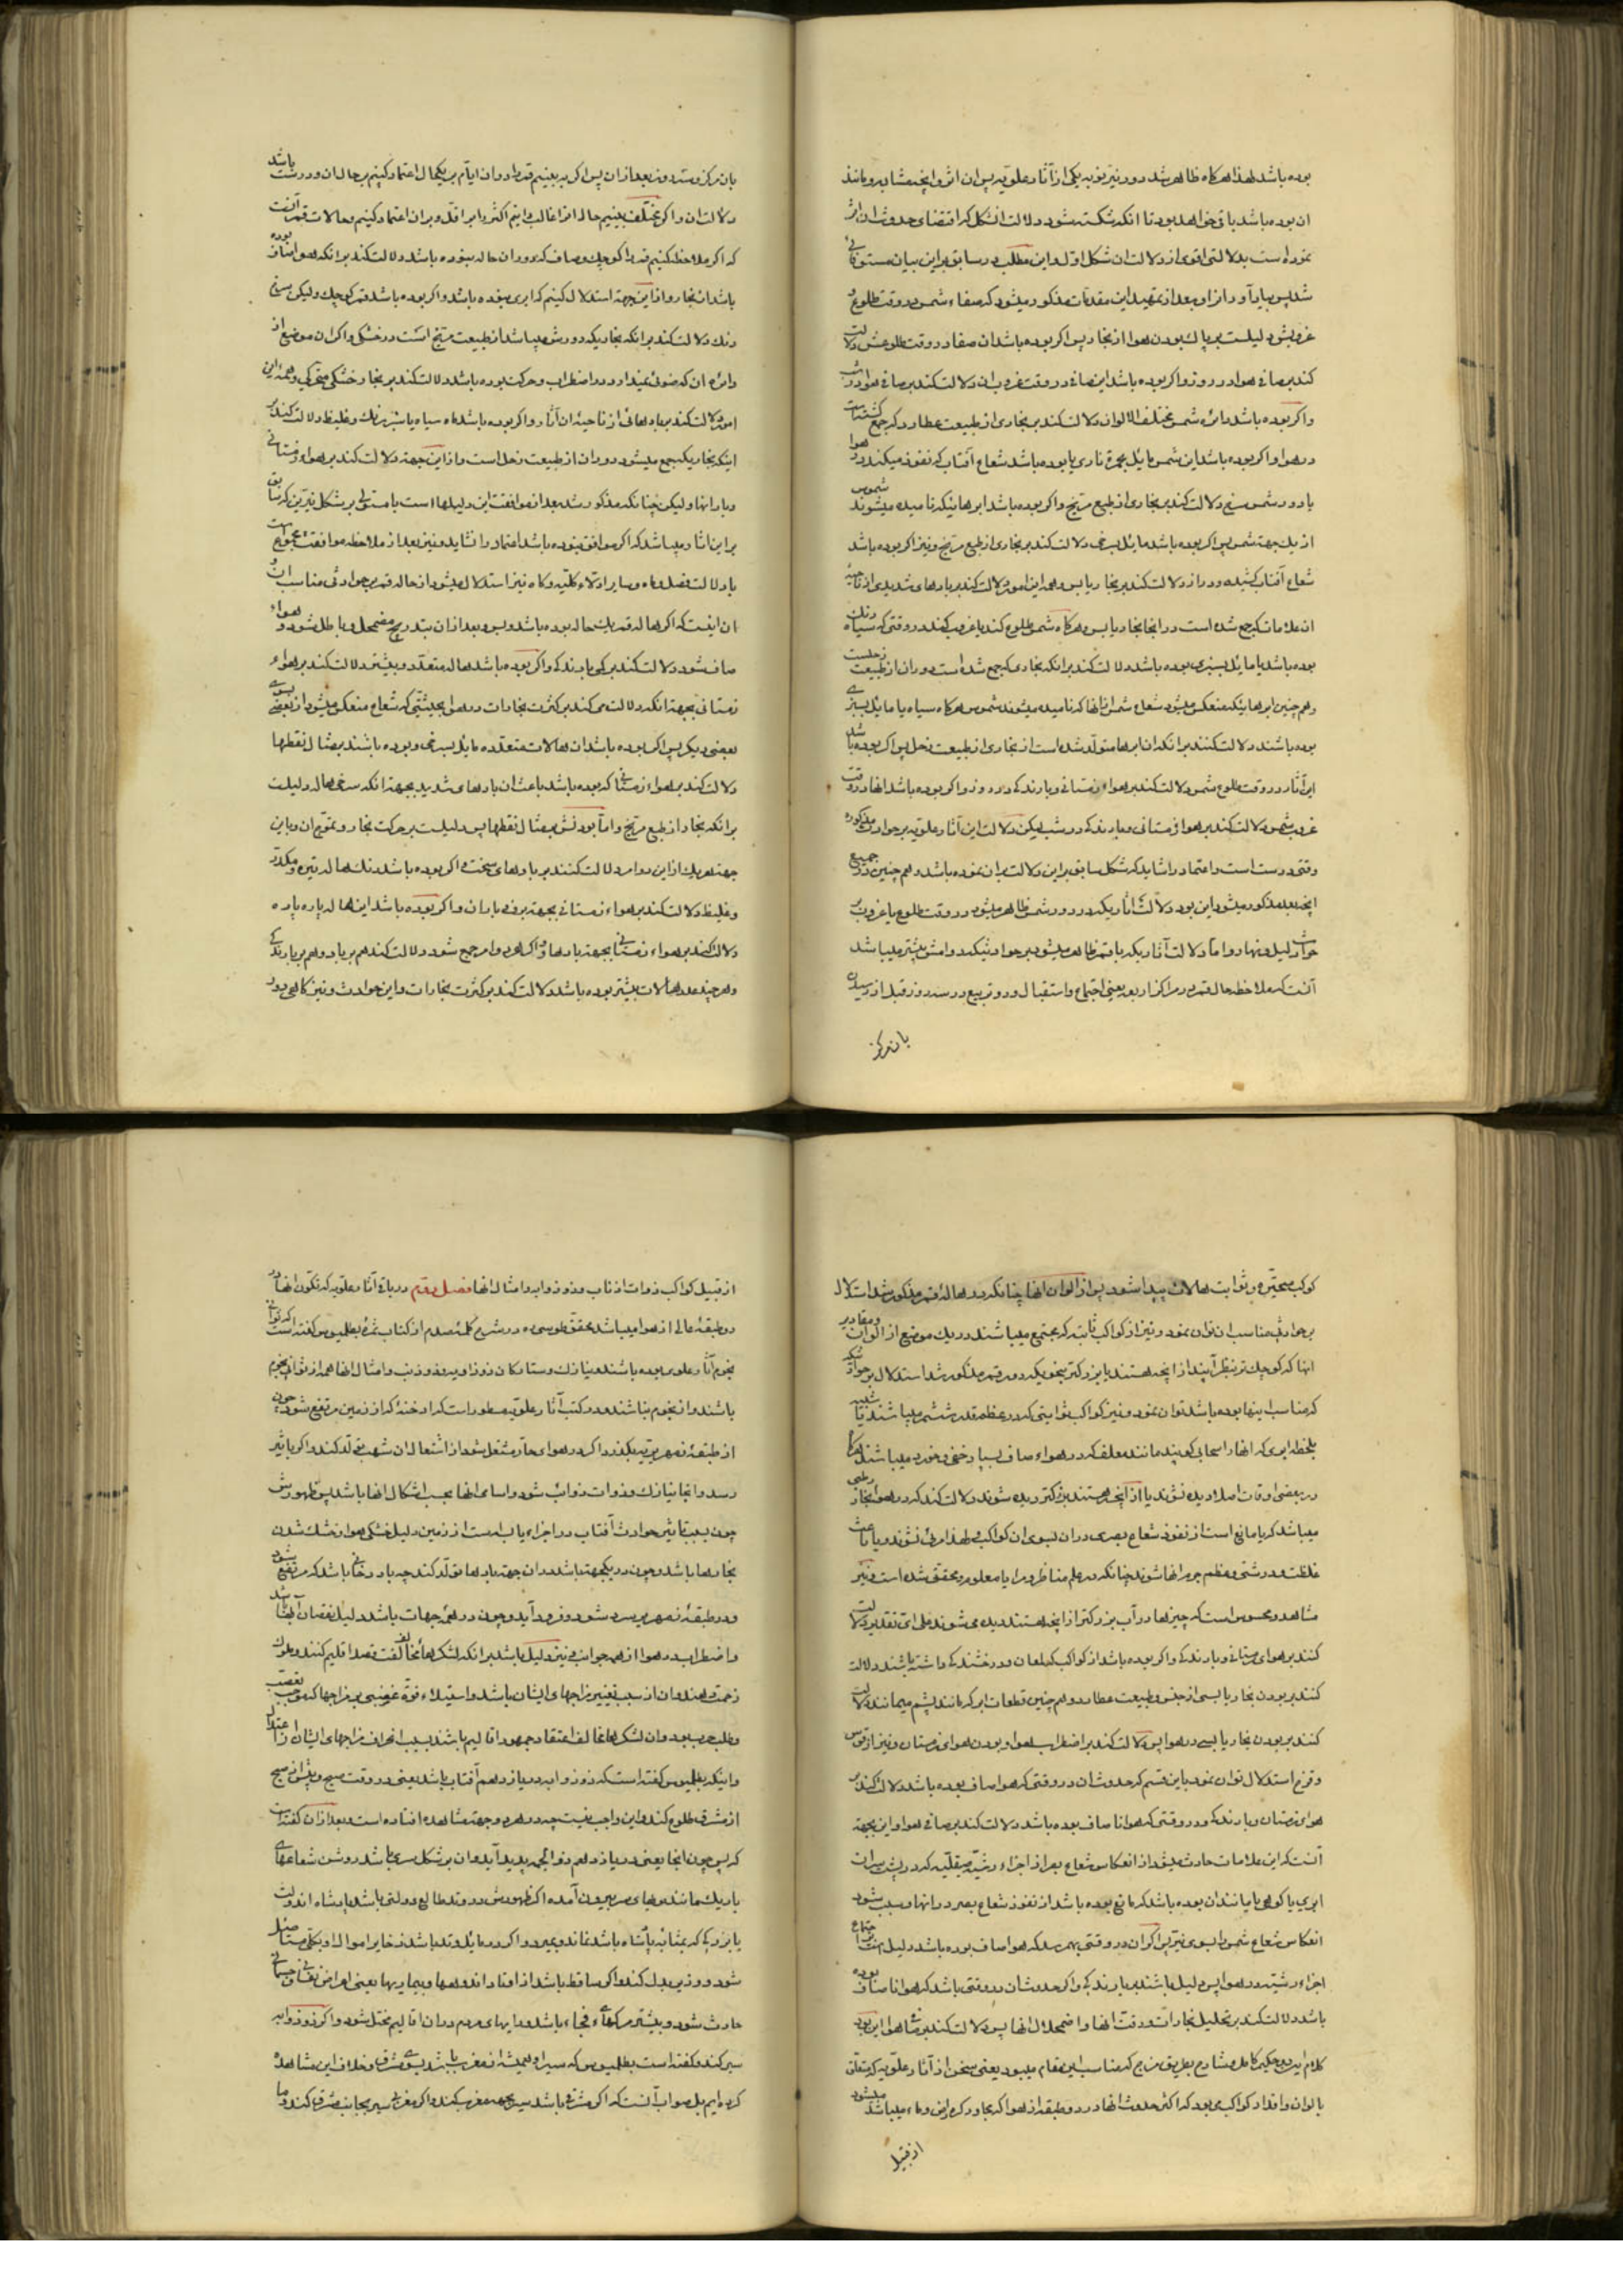 بوده باشد لهذا هرکاه ظاهر شد در نیرین به یکی از آثار علویه پس ان اثر و انچه مشابه و مانند
ان بوده باشد باقی خواهد بود تا انکه شکسته شود دلالت ان شکل که اقتضای حدوث ان اثر
نموده است بدلالتی اقوی از دلالت ان شکل اول و این مطلب در سابق بر این بیان مستوفائی
شد پس بیاد آور انرا و بعد از تمهید این مقدمات مذکور میشود که صفاء شمس در وقت طلوع و
غروبش دلیلست بر پاک بودن هوا از بخار پس اکر بوده باشد ان صفا در وقت طلوعش دلالت
کند بر صافی هوا در روز و اکر بوده باشد این صافی در وقت غروب ان دلالت کند بر صافی هوا در شب
و اکر بوده باشد دائره شمس مختلف الالوان دلالت کند بر بخاری از طبیعت عطارد که جمع کشته است
در هوا و اکر بوده باشد این شمس مایل بحمرة ناری یا بوده باشد شعاع آفتاب که نفوذ میکند در هوا
یا دور شمس سرخ دلالت کند بر بخاری از طبع مریخ و اکر بوده باشد ابرهائیکه نامیده میشوند شموس
از یک جهة شمس پس اکر بوده باشد مایل بسرخی دلالت کند بر بخاری از طبع مریخ و نیز اکر بوده باشد
شعاع آفتاب کشیده و دراز دلالت کند بر بخار یابس و همه این امور دلالت کند بر بادهای شدیدی از ناحیهٔ
ان علامات که جمع شده است در انجا بخار یابس و هرکاه شمس طلوع کند یا غروب کند در وقتی که سیاه رنک
بوده باشد یا مایل بسبزی بوده باشد دلالت کند بر انکه بخاری که جمع شده است در ان از طبیعت زحلست
و هم چنین ابرهائیکه منعکس میشود شعاع شمس از انها که نامیده میشوند شموس هرکاه سیاه یا مایل بسبزی
بوده باشند دلالت کنند بر انکه ان ابرها متولد شده است از بخاری از طبیعت زحل پس اکر بوده باشد
این آثار در وقت طلوع شمس دلالت کند بر هواء زمستانی و بارندکی در روز و اکر بوده باشد انها در وقت
غروب شمس دلالت کند بر هواء زمستانی و بارندکی در شب لیکن دلالت این آثار علویه بر حوادث مذکوره
وقتی درست است و اعتماد را شاید که شکل سابق بر این دلالت بر ان نموده باشد و هم چنین در جمیع
انچه بعد مذکور میشود این بود دلالت آثاریکه در دور شمس ظاهر میشود در وقت طلوع یا غروب بر
حوادث لیل و نهار و اما دلالت آثاریکه با قمر ظاهر میشود بر حوادثیکه دوامش بیشتر میباشد
آنست که ملاحظه حال قمر در مراکز اربعه یعنی اجتماع و استقبال و دو تربیع در سه روز قبل از رسیدن
بان مرکز
بان مرکز و سه روز بعد از ان پس اکر به بینیم قمر را در ان ایام بر یکحال اعتماد کنیم بر حال ان و درست باشد
دلالت ان و اکر مختلف بینیم حال انرا غالب دانیم اکثر را بر اقل و بر ان اعتماد کنیم و حالات قمر آنست
که اکر ملاحظه کنیم قمر را کوچک و صاف که در دور ان هاله نبوده باشد دلالت کند بر انکه هوا صاف بوده
باشد از بخار و از این جهة استدلال کنیم که ابری نبوده باشد و اکر بوده باشد قمر کوچک ولیکن بسرخی
رنک دلالت کند بر انکه بخاریکه در دورش میباشد از طبیعت مریخ است در خشکی و اکر ان موضع از
دائره ان که ضوئی نمیدارد در اضطراب و حرکت بوده باشد دلالت کند بر بخار خشکی متحرکی و همه این
امور دلالت کند بر بادهائی از ناحیه ان آثار و اکر بوده باشد ماه سیاه یا سبز رنک و غلیظ دلالت کند بر
اینکه بخاریکه جمع میشود در ان از طبیعت زحل است و از این جهة دلالت کند بر هواء زمستانی
و بارانها ولیکن چنانکه مذکور شد بعد از موافقت این دلیلها است با مستولی بر شکل نیرین که سابق
بر این آثار میباشد که اکر موافق نبوده باشد اعتماد را نشاید و نیز بعد از ملاحظه موافقت مجموع است
با دلالت فصل و ماه و سایر ادلاء کلیه و کاه نیز استدلال میشود از هاله قمر بر حوادثی مناسب ان و
ان اینست که اکر هاله قمر یک هاله بوده باشد و بس و بعد از ان بتدریج مضمحل و باطل شود و هواء
صاف شود دلالت کند بر کمی بارندکی و اکر بوده باشد هاله متعدد و بیشتر دلالت کند بر هواء
زمستانی بجهة انکه دلالت می کند بر کثرت بخارات در هوا بحیثیتی که شعاع منعکس میشود از بعضی بسوی
بعضی دیکر پس اکر بوده باشد ان هالات متعدده مایل بسرخی و بوده باشند بمثال نقطها
دلالت کند بر هواء زمستانی که بوده باشد باعث ان بادهای شدید بجهة انکه سرخی هاله دلیلست
بر انکه بخار از طبع مریخ و اما بودنش بمثال نقطها پس دلیلست بر حرکت بخار و تموج ان و باین
جهة هریک از این دو امر دلالت کنند بر بادهای سخت و اکر بوده باشد رنک هاله تیره و مکدر
و غلیظ دلالت کند بر هواء زمستانی بجهة برف و باران و اکر بوده باشد این هاله پاره پاره
دلالت کند بر هواء زمستانی بجهة بادها و اکر هر دو امر جمع شود دلالت کند هم بر باد و هم بر بارندکی
و هر چند عدد هالات بیشتر بوده باشد دلالت کند بر کثرت بخارات و این حوادث و نیز کاهی دور
کوکب متحیره و ثوابت هالات پیدا شود پس از الوان انها چنانکه در هاله قمر مذکور شد استدلال
بر حوادث مناسب ان توان نمود و نیز از کواکب ثابته که مجتمع میباشند در یک موضع از الوان و مقادیر
انها که کوچک تر بنظر آیند از انچه هستند یا بزرکتر بنحویکه در قمر مذکور شد استدلال بر حوادثیکه
که مناسب اینها بوده باشد توان نمود و نیز کواکب ثوابتی که در عظم قدر ششم میباشند یا شبیه
بلخطه ابری که انها را سحابی کویند مانند معلف که در هواء صاف بسیار خفی و خورد میباشند هرکاه
در بعضی اوقات اصلا دیده نشوند یا از انچه هستند بزرکتر دیده شوند دلالت کند که در هوا بخار رطبی
میباشد که یا مانع است از نفوذ شعاع بصری در ان بسوی ان کواکب و لهذا مرئی نشوند و یا باعث
غلظت و درشتی و عظم جرم انها شوند چنانکه در علم مناظر و مرایا معلوم و محقق شده است و نیز
مشاهد و محسوس است که چیزها در آب بزرکتر از انچه هستند دیده می شوند علی ای تقدیر دلالت
کنند بر هوای زمستانی و بارندکی و اکر بوده باشد از کواکب که لمعان و درخشندکی داشته باشند دلالت
کنند بر بودن بخار یابسی از جنس و طبیعت عطارد و هم چنین قطعات ابر که مانند پشم میمانند دلالت
کنند بر بودن بخار یابسی در هوا پس دلالت کند بر اضطراب هوا و بودن هوای زمستان و نیز از قوس
و قزح استدلال توان نمود باین قسم که حدوث ان در وقتی که هوا صاف بوده باشد دلالت کند بر
هوای زمستان و بارندکی و در وقتی که هوا ناصاف بوده باشد دلالت کند بر صافی هوا و این بجهة
آنست که این علامات حادث میشود از انعکاس شعاع بصر از اجزاء رشیه صیقلیه که در پشت سر ان
ابری یا کوهی یا مانند ان بوده باشد که مانع بوده باشد از نفوذ شعاع بصر در انها و سبب شود
انعکاس شعاع شمس را بسوی نیر پس اکر ان در وقتی بهم رسد که هوا صاف بوده باشد دلیل است بر اجتماع
اجزاء رشیه در هوا پس دلیل باشند بر بارندکی و اکر حدوثشان در وقتی باشد که هوا ناصاف بوده
باشد دلالت کند بر تحلیل بخارات و رقت انها و اضمحلال انها پس دلالت کند بر صافی هوا این بود
کلام این دو حکیم کامل و شارح بطریق مزج که مناسب این مقام میبود یعنی سخن از آثار علویه که متعلق
بالوان و اقدار کواکب می بود که اکثر حدوث انها در دو طبقه از هوا که مجاور کره ارض و ماء میباشد میشود
از قبیل
از قبیل کواکب ذوات اذناب و ذو ذوابه و امثال انها فصل دوم در بیان آثار علویه که تکون انها در
دو طبقهٔ عالی از هوا میباشد محقق طوسی ره در شرح کلمهٔ صدم از کتاب ثمرهٔ بطلمیوس کفته است که ثوانی
نجوم آثار علوی بوده باشند و نیازک و ستارکان ذو ذوابه و ذو ذنب و امثال انها همه از ثوانی نجوم
باشند و از نجوم نباشند و در کتب آثار علویه مسطور است که ادخنهٔ که از زمین مرتفع شود چون
از طبقهٔ زمهریریه بکذرد اکر در هوای حار مشتعل شود از اشتعال ان شهب تولد کند و اکر باثیر
رسد و انجا نیازک و ذوات ذوائب شود و اسامی انها بحسب اشکال انها باشد پس ظهورش
چون بسبب تاثیر حوادث آفتاب در اجزاء یابسه است از زمین دلیل خشکی هوا و خشک شدن
بخارها باشد و چون در یکجهة باشد در ان جهة بادها تولد کند چه باد دخانی باشد که مرتفع شود
و در طبقهٔ زمهریر سرد شود و فرود آید و چون در همهٔ جهات باشد دلیل نقصان آبها باشد
و اضطراب در هوا از همه جوانب و نیز دلیل باشد بر انکه لشکرهای مخالفت قصد اقلیم کنند و ملوک
زحمت دهند و ان از سبب تغییر مزاجهای ایشان باشد و استیلاء قوة غضبی بر مزاجها که موجب تعصب
و طلب حرب بود و ان لشکرها مخالف اعتقاد جمهور اقالیم باشند بسبب انحراف مزاجهای ایشان از اعتدال
و اینکه بطلمیوس کفته است که ذو ذوابه در یازدهم آفتاب باشد یعنی در وقت صبح و پیش از صبح
از مشرق طلوع کند و این واجب نیست چه در هر دو جهة مشاهده افتاده است و بعد از ان کفته است
که پس چون انجا یعنی در یازدهم ذو الجمه پدید آید و ان بر شکل سری باشد روشن شعاعهای
باریک مانند مویهای سر بیرون آمده اکر ظهورش در وتد طالع دولتی باشد پادشاه ان دولت
یا بزرکی که بمثابه پادشاه باشد نماند و بمیرد و اکر در مایل وتد باشد ذخایر اموال او بکلی مستأصل
شود و وزیر بدل کند و اکر ساقط باشد از اوتاد اندوهها و بیماریها یعنی امراض نفسانی و جسمانی
حادث شود و بیشتر مرکهای فجاء باشد و رایهای مردم در ان اقالیم مختل شود و اکر ذو ذوابه
سیر کند و کفته است بطلمیوس که سیر او همیشه از مغرب باشد بسوی مشرق و خلاف این مشاهده
کرده ایم بل صواب آنست که اکر مشرقی باشد سیر بجهة مغرب کند و اکر مغربی سیر بجانب مشرق کند و ما